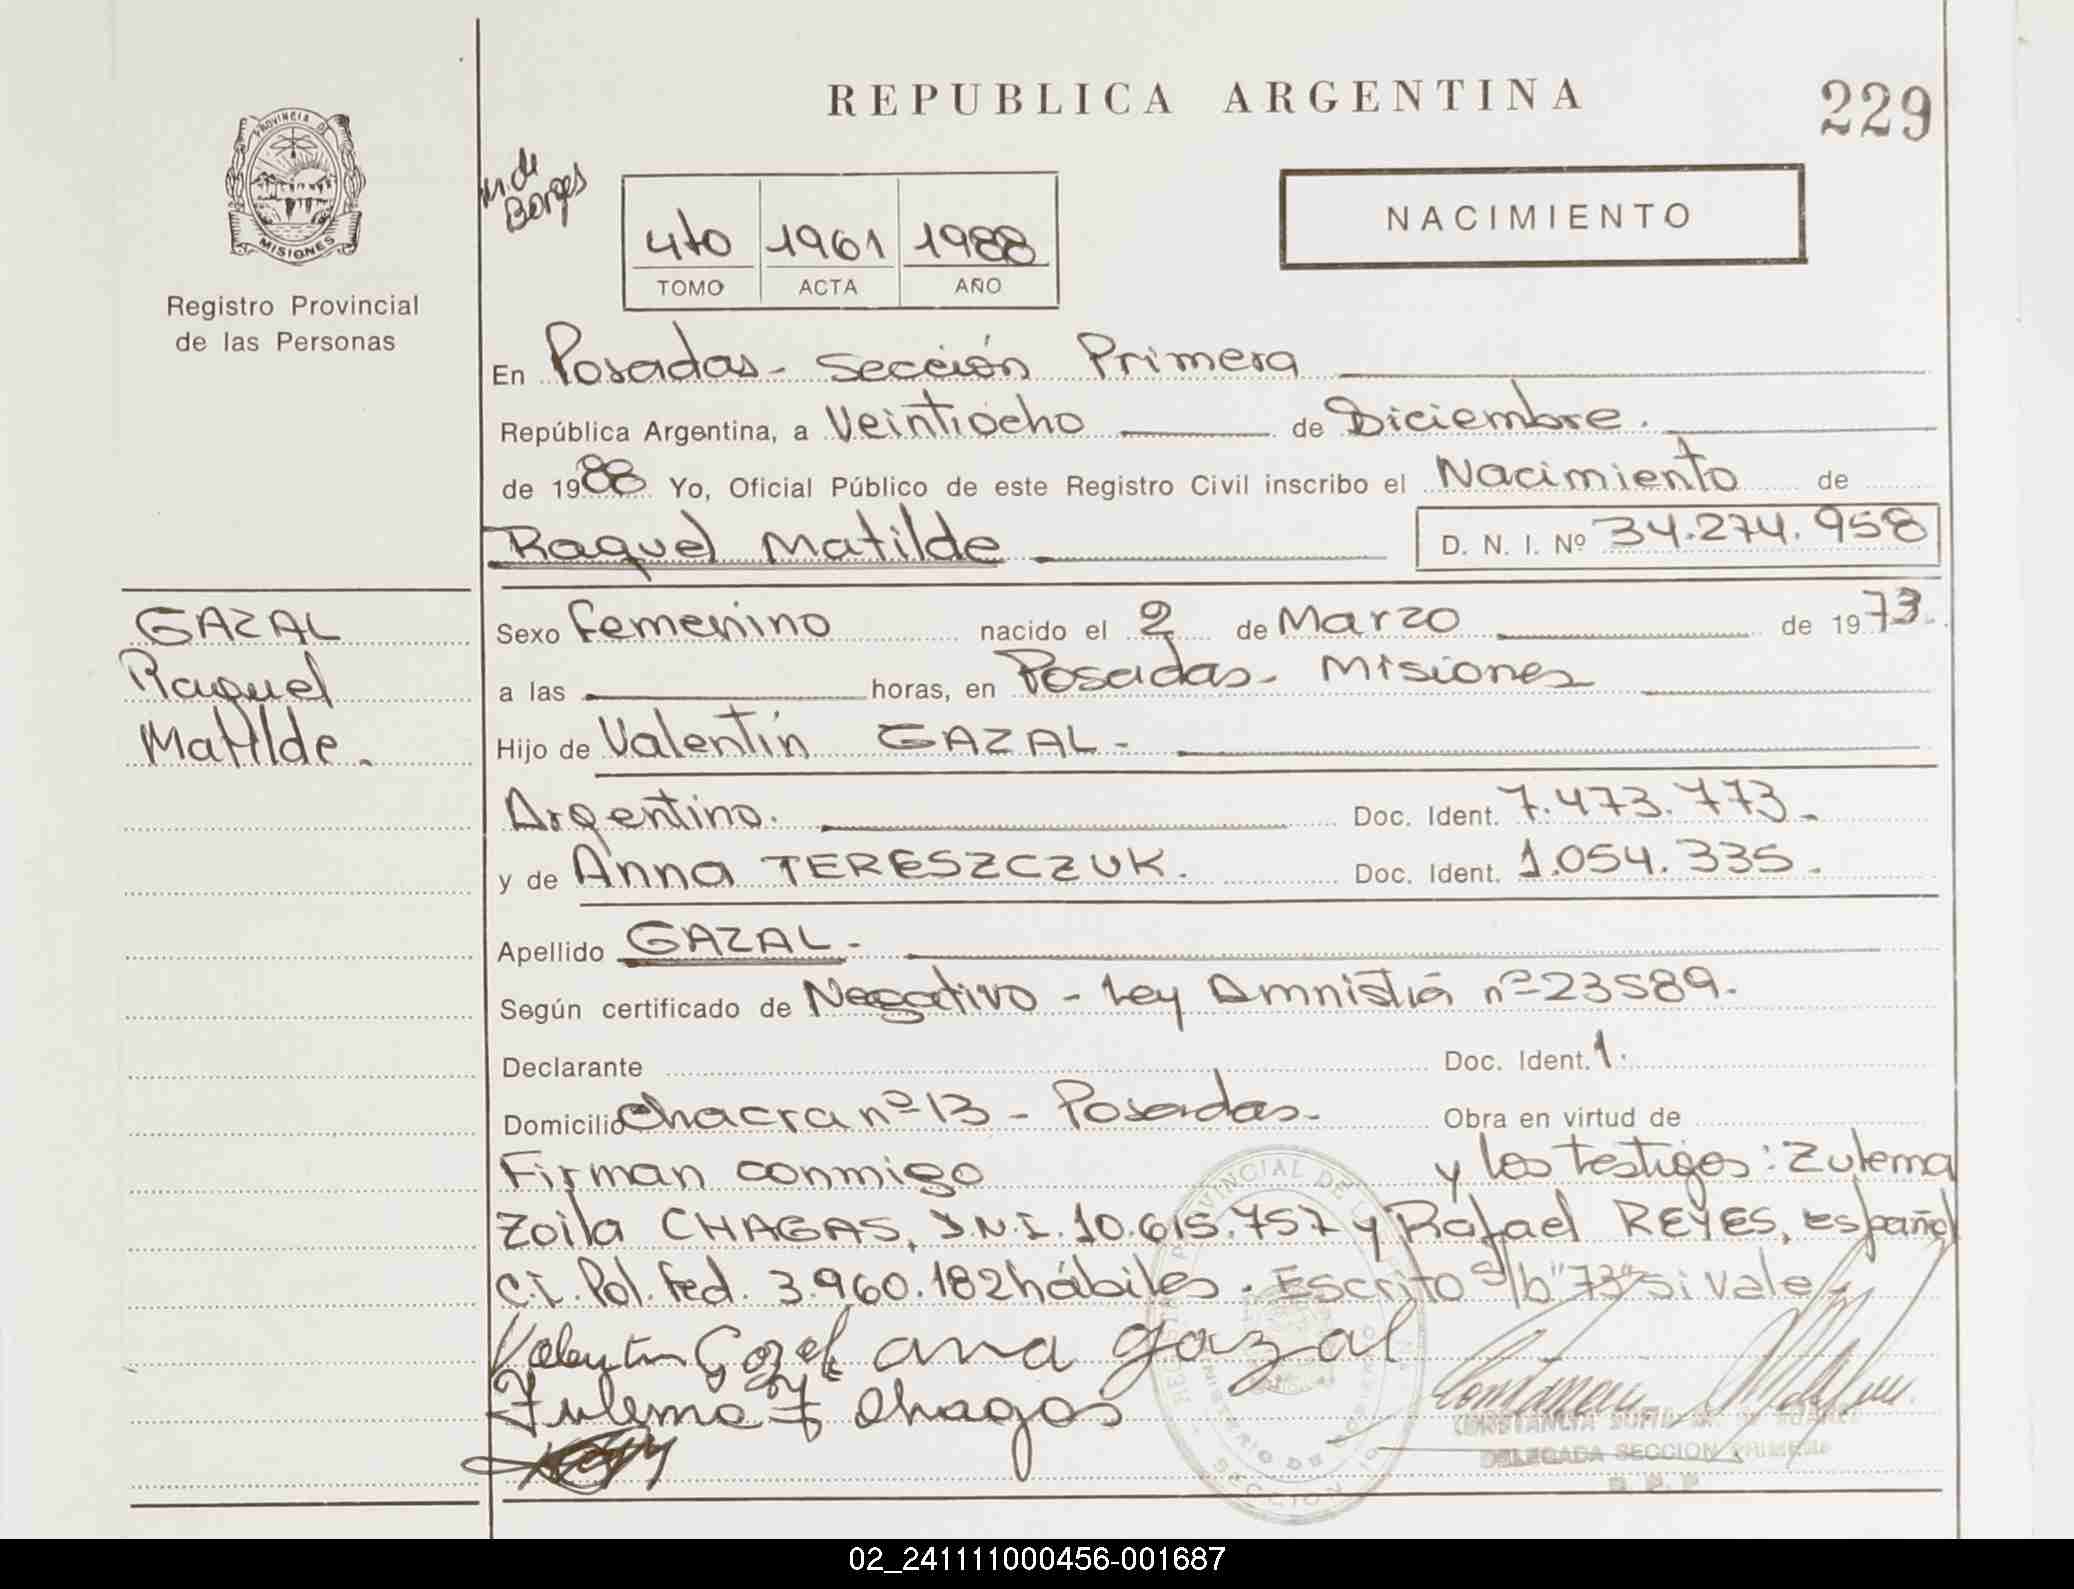 REPUBLICA ARGENTINA
229
PROVINCIA DE
MISIONES
Registro Provincial
de las Personas
m. de
Borges
4to 1961 1988
TOMO ACTA AÑO
NACIMIENTO
En Posadas - Sección Primera
República Argentina, a Veintiocho de Diciembre.
de 1988 Yo, Oficial Público de este Registro Civil inscribo el Nacimiento de
Raquel Matilde D. N. I. Nº 34.274.958
GAZAL
Raquel
Matilde.
Sexo femenino nacido el 2 de Marzo de 1973.
a las horas, en Posadas - Misiones
Hijo de Valentín GAZAL -
Argentino. Doc. Ident. 7.473.773.
y de Anna TERESZCZUK. Doc. Ident. 1.054.335.
Apellido GAZAL -
Según certificado de Negativo - Ley Amnistiá nº 23589.
Declarante Doc. Ident. 1.
Domicilio Chacra nº 13 - Posadas - Obra en virtud de
Firman conmigo y los testigos: Zulema
Zoila CHAGAS, D.N.I. 10.615.757 y Rafael REYES, español
C.I. Pol. Fed. 3.960.182 hábiles. Escrito s/b "73" si vale -
Valentin Gazal ana gazal
Zulema Z de Chagas
DELEGADA SECCION PRIMERA
R. P. P
02_241111000456-001687